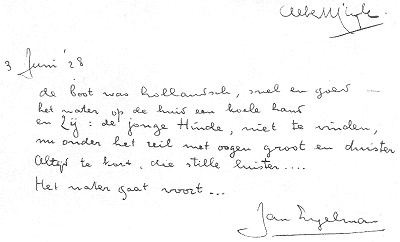 3 Juni '28
de boot was hollandsch, snel en goed —
het water op de huid een koele hand
en Zij : de jonge Hinde, niet te vinden,
nu onder het zeil met oogen groot en duister
Altijd te kort, die stille luister....
Het water gaat voort...
Jan Engelman